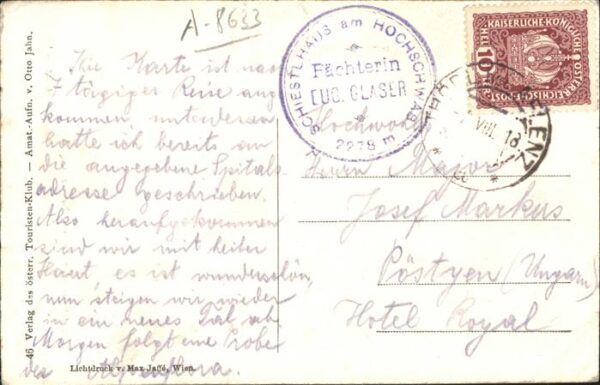 A-8633
Ihre Karte ist nach
7 tägiger Reise ange
kommen, unterdessen
hatte ich bereits an
die angegebene Spitals
adresse geschrieben.
Also heraufgekommen
sind wir mit heiler
Haut, es ist wunderschön,
nun steigen wir wieder
in ein neues Tal ab
Morgen folgt eine Probe
der Alpenflora.
46 Verlag des österr. Touristen-Klub. — Amat.-Aufn. v. Otto Jahn.
Lichtdruck v. Max Jaffé, Wien.
SCHIESTLHAUS am HOCHSCHWAB
Pächterin
EUG. GLASER
KAISERLICHE KÖNIGLICHE ÖSTERREICHISCHE POST
HELLER 10
VIII. 18
Hochwohl
Herrn Major
Josef Markus
Pöstyen (Ungarn)
Hotel Royal